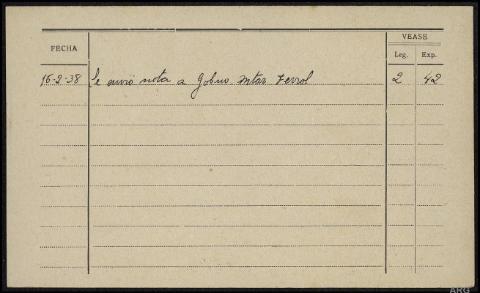 VEASE
FECHA
Leg. Exp.
16-2-38 Se envió nota a Gobno Mtar Ferrol 2 42
ARG